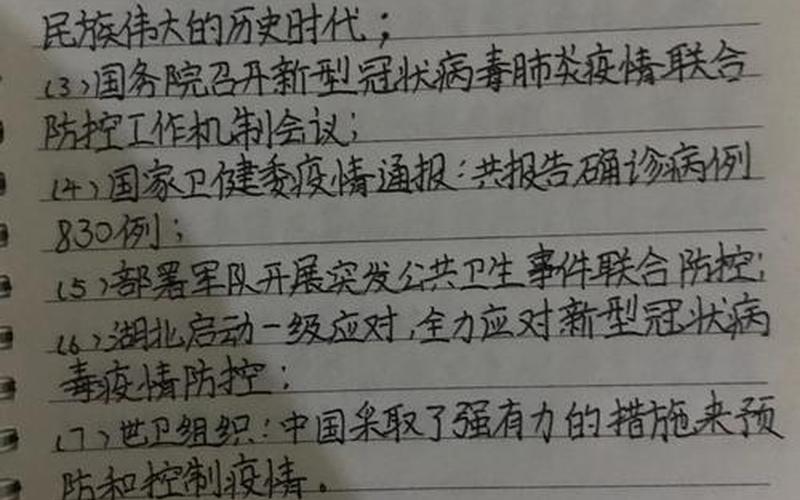 民族伟大的历史时代；
(3)国务院召开新型冠状病毒肺炎疫情联合
防控工作机制会议；
(4)国家卫健委疫情通报：共报告确诊病例
830例；
(5)部署军队开展突发公共卫生事件联合防控；
(6)湖北启动一级应对，全力应对新型冠状病
毒疫情防控；
(7)世卫组织：中国采取了强有力的措施来预
防和控制疫情。